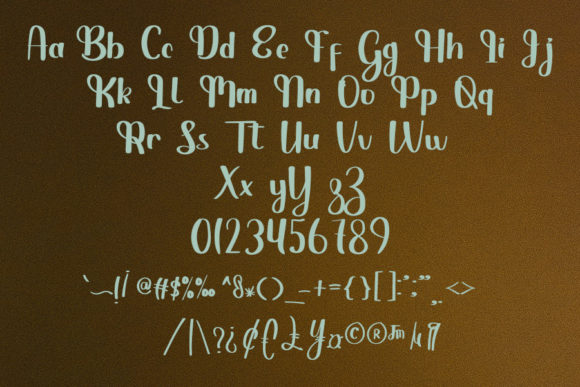 Aa Bb Cc Dd Ee Ff Gg Hh Ii Jj
Kk Ll Mm Nn Oo Pp Qq
Rr Ss Tt Uu Vv Ww
Xx yY zZ
0123456789
`~!¡ @#$%‰ ^&*()_-+={}[]:";'",. <>
/|\?¿¢£Ł¥¤©®™µ¶